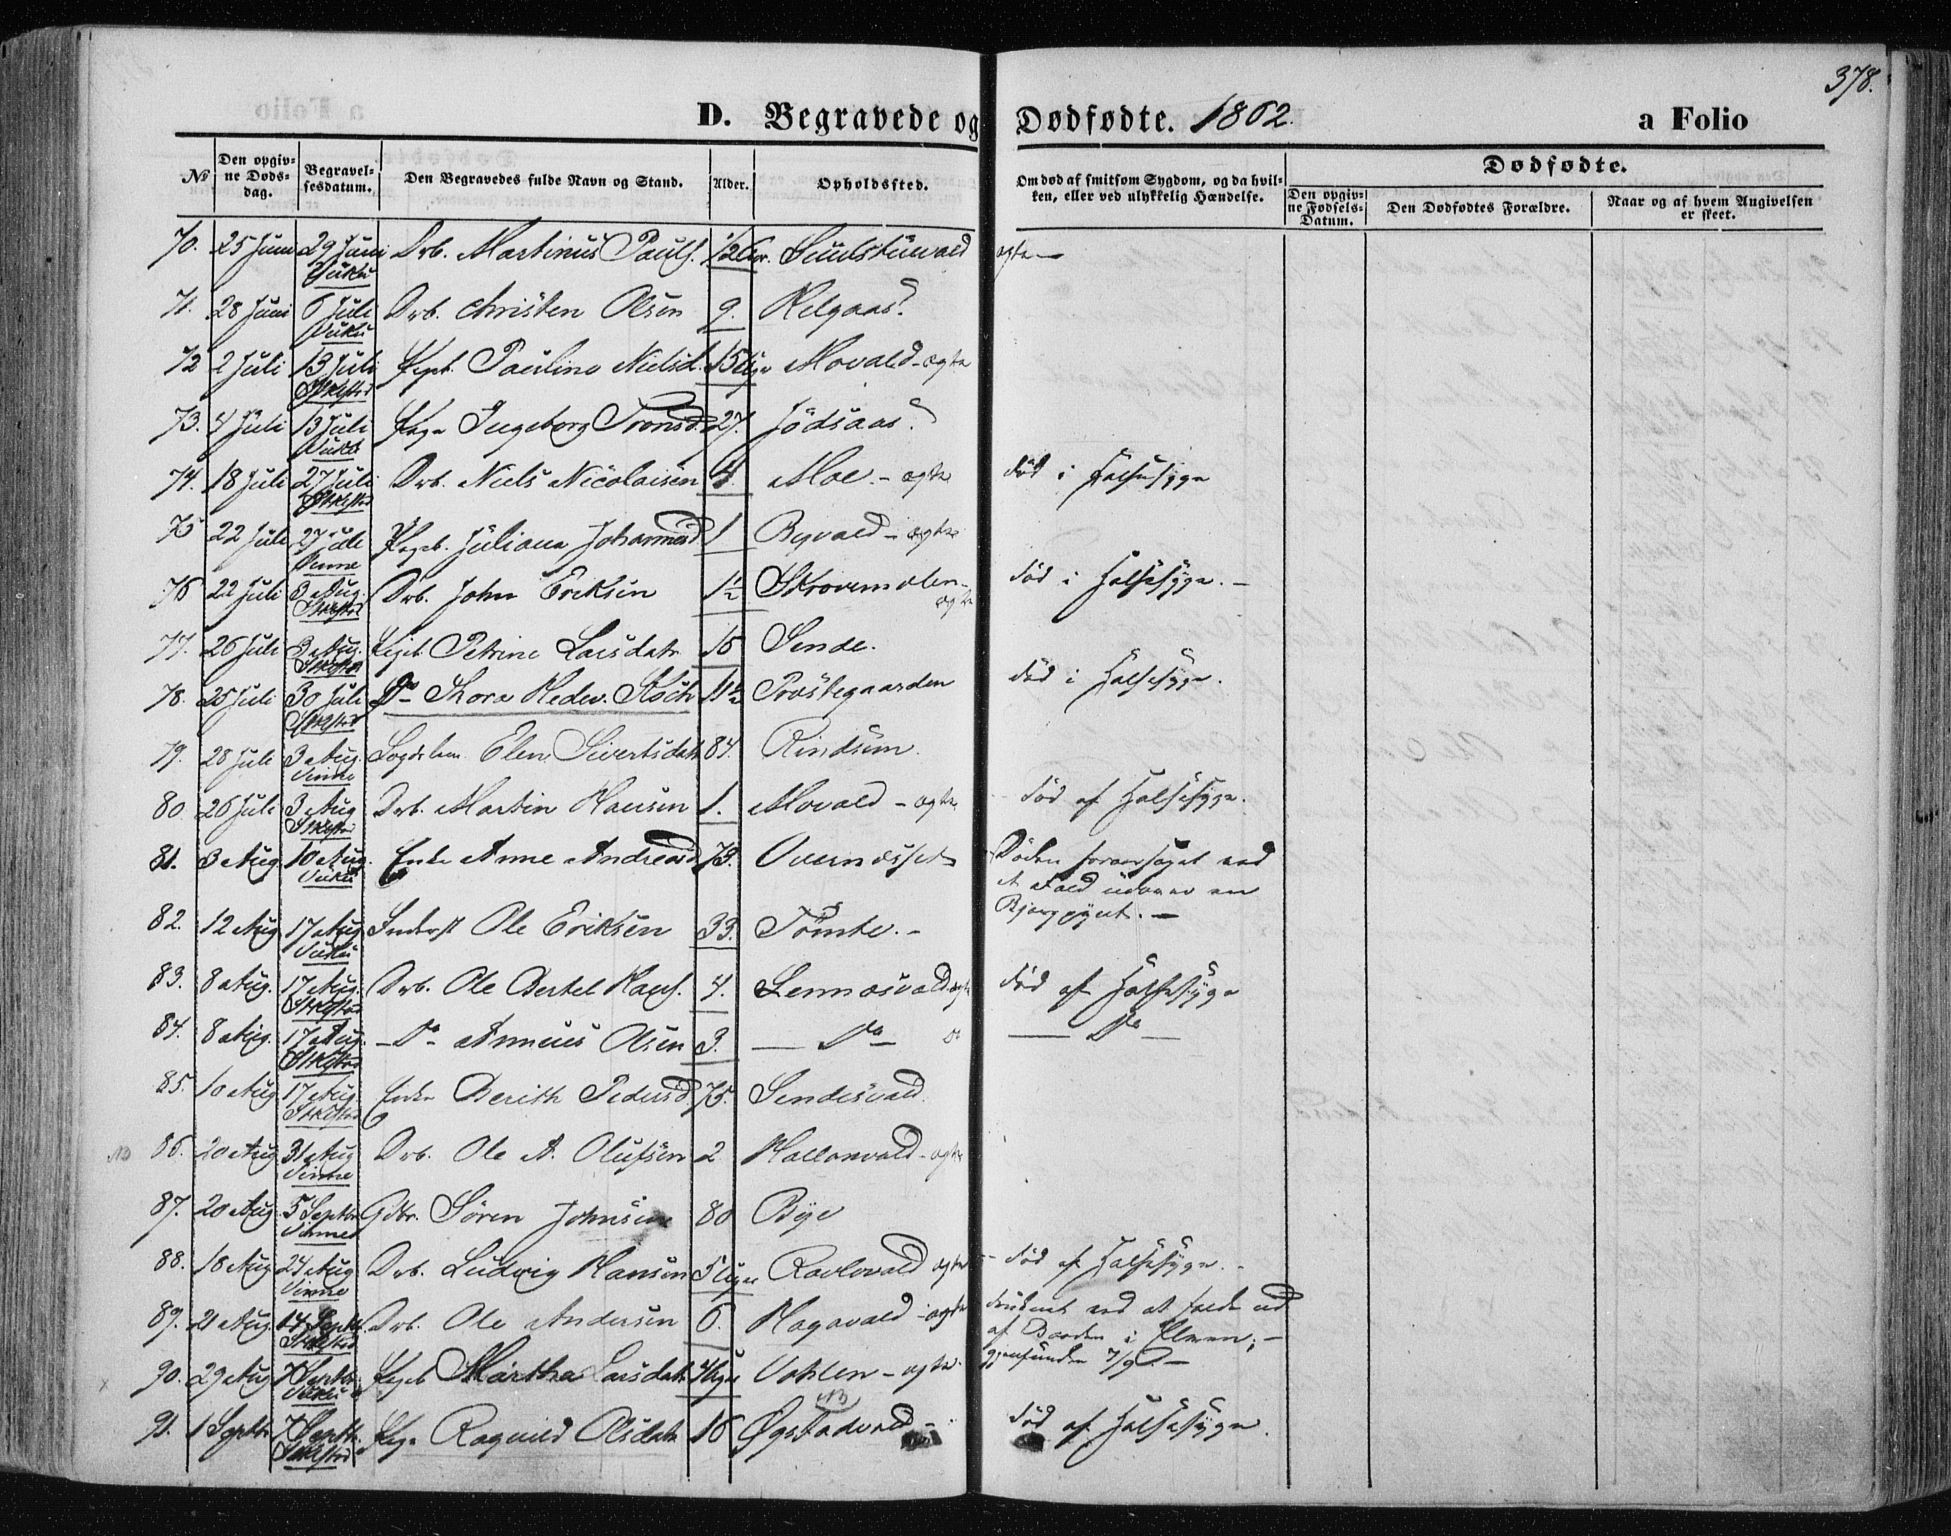 378.
D. Begravede og Dødfødte. 1862. a Folio
No
Den opgivne Dødsdag.
Begravelsesdatum.
Den Begravedes fulde Navn og Stand.
Alder.
Opholdssted.
Om død af smitsom Sygdom, og da hvilken, eller ved ulykkelig Hændelse.
Dødfødte.
Den opgivne Fødsels-Datum.
Den Dødfødtes Forældre.
Naar og af hvem Angivelsen er skeet.
70. 25 Juni 29 Juni Vuku Drb. Martinus Pauls. 1/2 ægte
71. 28 Juni 6 Juli Vuku Drb. Christen Olsen 9. Helgaas
72 2 Juli 13 Juli Stkstad Pigeb. Pauline Nielsd. Movald - ægte
73. 4 Juli 13 Juli Vuku Pige Ingeborg Tronsd. 27. Jødsaas
74. 18 Juli 27 Juli Stkstad Drb. Niels Nicolaisen 4. Moe - ægte død i Halsesyge
75 22 Juli 27 Juli Vinne Pigeb. Juliana Johannesd. 1 Byvald - ægte
76 22 Juli 3 Aug. Stkstad Drb. John Eriksen 1 1/2 ægte død i Halsesyge. -
77. 26 Juli 3 Aug. Stkstad Pigeb. Petrine Larsdatr 15 Sende.
78. 25 Juli 30 Juli Stkstad Do Thora Hedev. Koch 11 1/2 Provstegaarden død i Halsesyge.
79. 28 Juli 3 Aug. Vinne Elen Sivertsdatr 84. Rindsem.
80. 26 Juli 3 Aug Stkstad Drb. Martin Hansen 1. Movald - ægte død af Halsesyge.
81. 3 Aug. 10 Aug. Vuku Enke Anne Andreasd. 73. Døden foraarsaget ved et Fald udover en Bjergpynt. -
82. 12 Aug 17 Aug. Vuku Inderst Ole Eriksen 33. Tømte. -
83. 8 Aug. 17 Aug. Stkstad Drb. Ole Bertel Hans. 4. ægte død af Halsesyge
84. 8 Aug. 17 Aug. Stkstad - Do Anneus Olsen 3. - Do - - Do -
85. 10 Aug 17 Aug. Stkstad Enke Berith Pedersd. 75. Sendesvald.
NB 86. 20 Aug 31 Aug Vinne Drb. Ole A. Olufsen 2 Hallanvald - ægte
87. 20 Aug. 5 Septbr Vinne Gdbr. Søren Johnsen 80 Bye
88. 18 Aug. 24 Aug Vinne Drb. Ludvig Hansen 5 Uger ægte - død af Halsesyge. -
89. 21 Aug. 14 Sept. Stkstad Drb. Ole Andersen 6. Hagavald - ægte druknet ved at falde ud af Baaden i Elven; - gjenfunden 7/9 -
90. 29 Aug 7 Septbr. Vuku Pigeb Martha Larsdatr 4 Uger Vohlen - ægte
91. 1 Septbr 7 Septbr. Stkstad Pige Ragnild Olsdatr 16 NB Øgstadvald - død af Halsesyge.